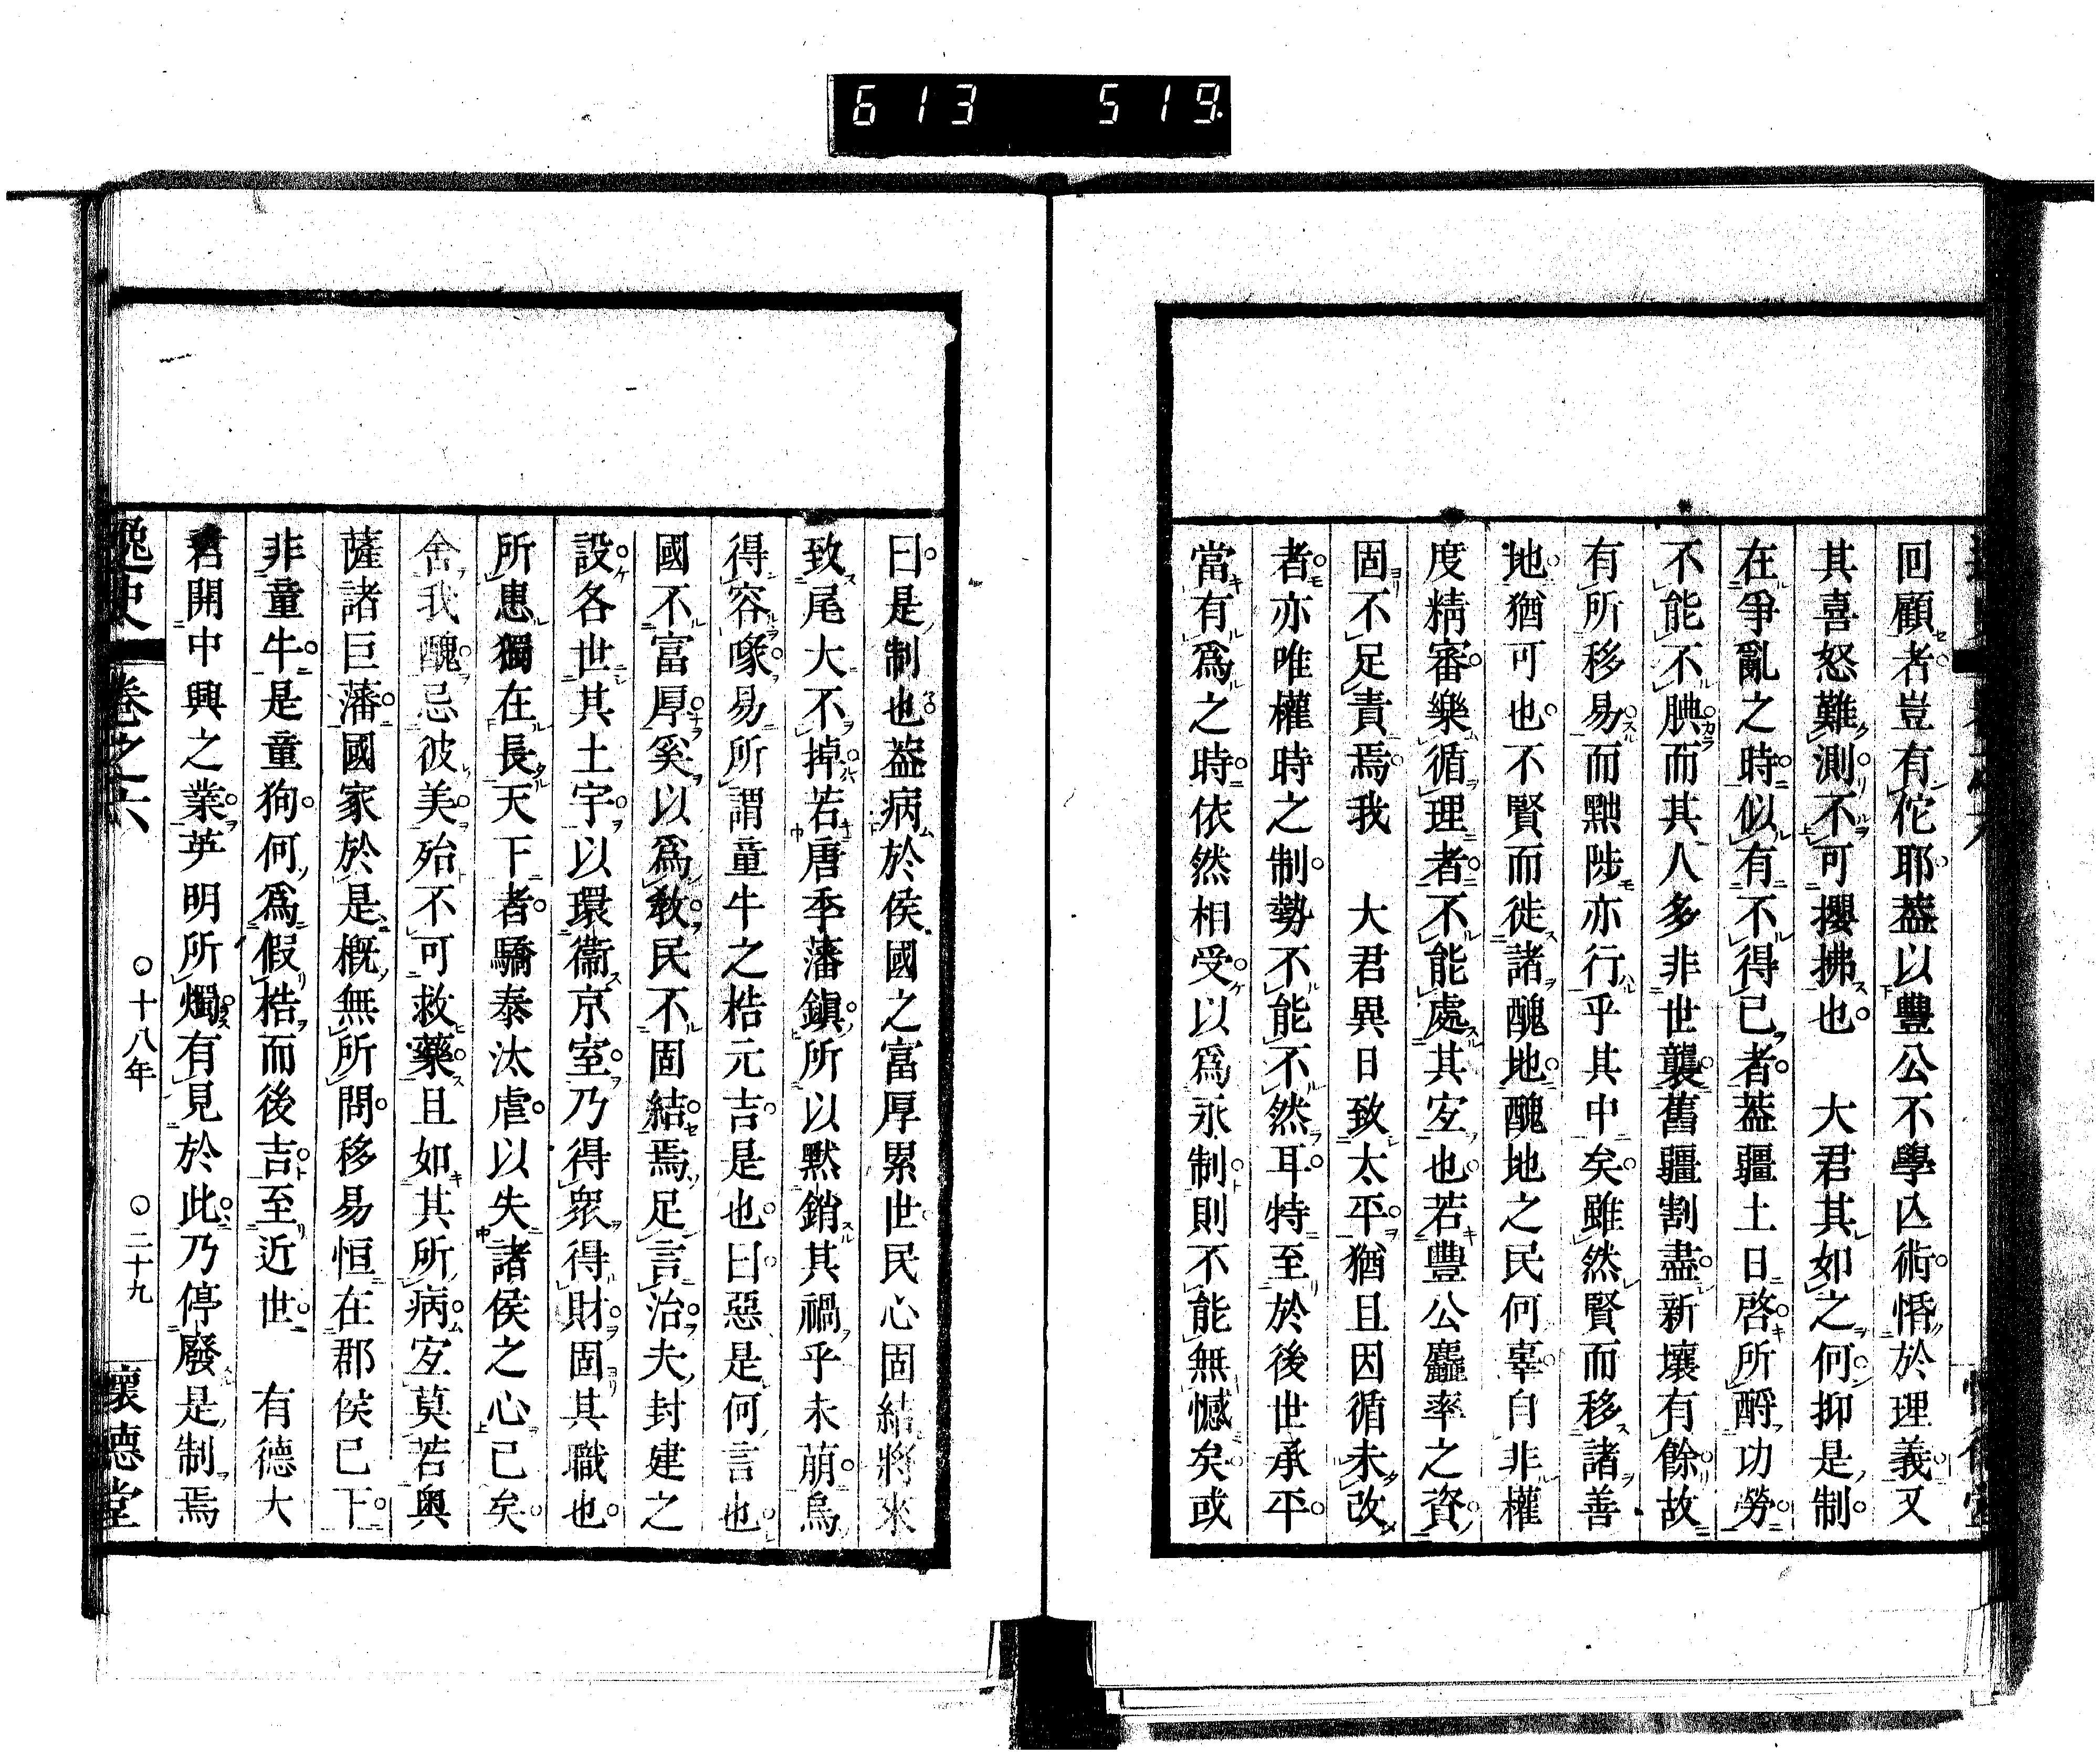 613 519.
回顧者豈有佗耶葢以豐公不學亾術惛於理義又
其喜怒難測不可攖拂也　大君其如之何抑是制
在爭亂之時似有不得已者葢疆土日啓所酹功勞
不能不腆而其人多非世襲舊疆割盡新壤有餘故
有所移易而黜陟亦行乎其中矣雖然賢而移諸善
地猶可也不賢而徙諸醜地醜地之民何辜自非權
度精審樂循理者不能處其宐也若豐公麤率之資
固不足責焉我　大君異日致太平猶且因循未改
者亦唯權時之制勢不能不然耳特至於後世承平
當有爲之時依然相受以爲永制則不能無憾矣或
曰是制也葢病於侯國之富厚累世民心固結將來
致尾大不掉若唐季藩鎭所以默銷其禍乎未萠烏
得容喙易所謂童牛之梏元吉是也曰惡是何言也
國不富厚奚以爲敎民不固結焉足言治夫封建之
設各世其土宇以環衞京室乃得衆得財固其職也
所患獨在長天下者驕泰汰虐以失諸侯之心已矣
舍我醜忌彼美殆不可救藥且如其所病宐莫若奧
薩諸巨藩國家於是概無所問移易恒在郡侯已下
非童牛是童狗何爲假梏而後吉至近世　有德大
君開中興之業英明所燭有見於此乃停廢是制焉
逸史　卷之六　〇十八年　〇二十九　懷德堂